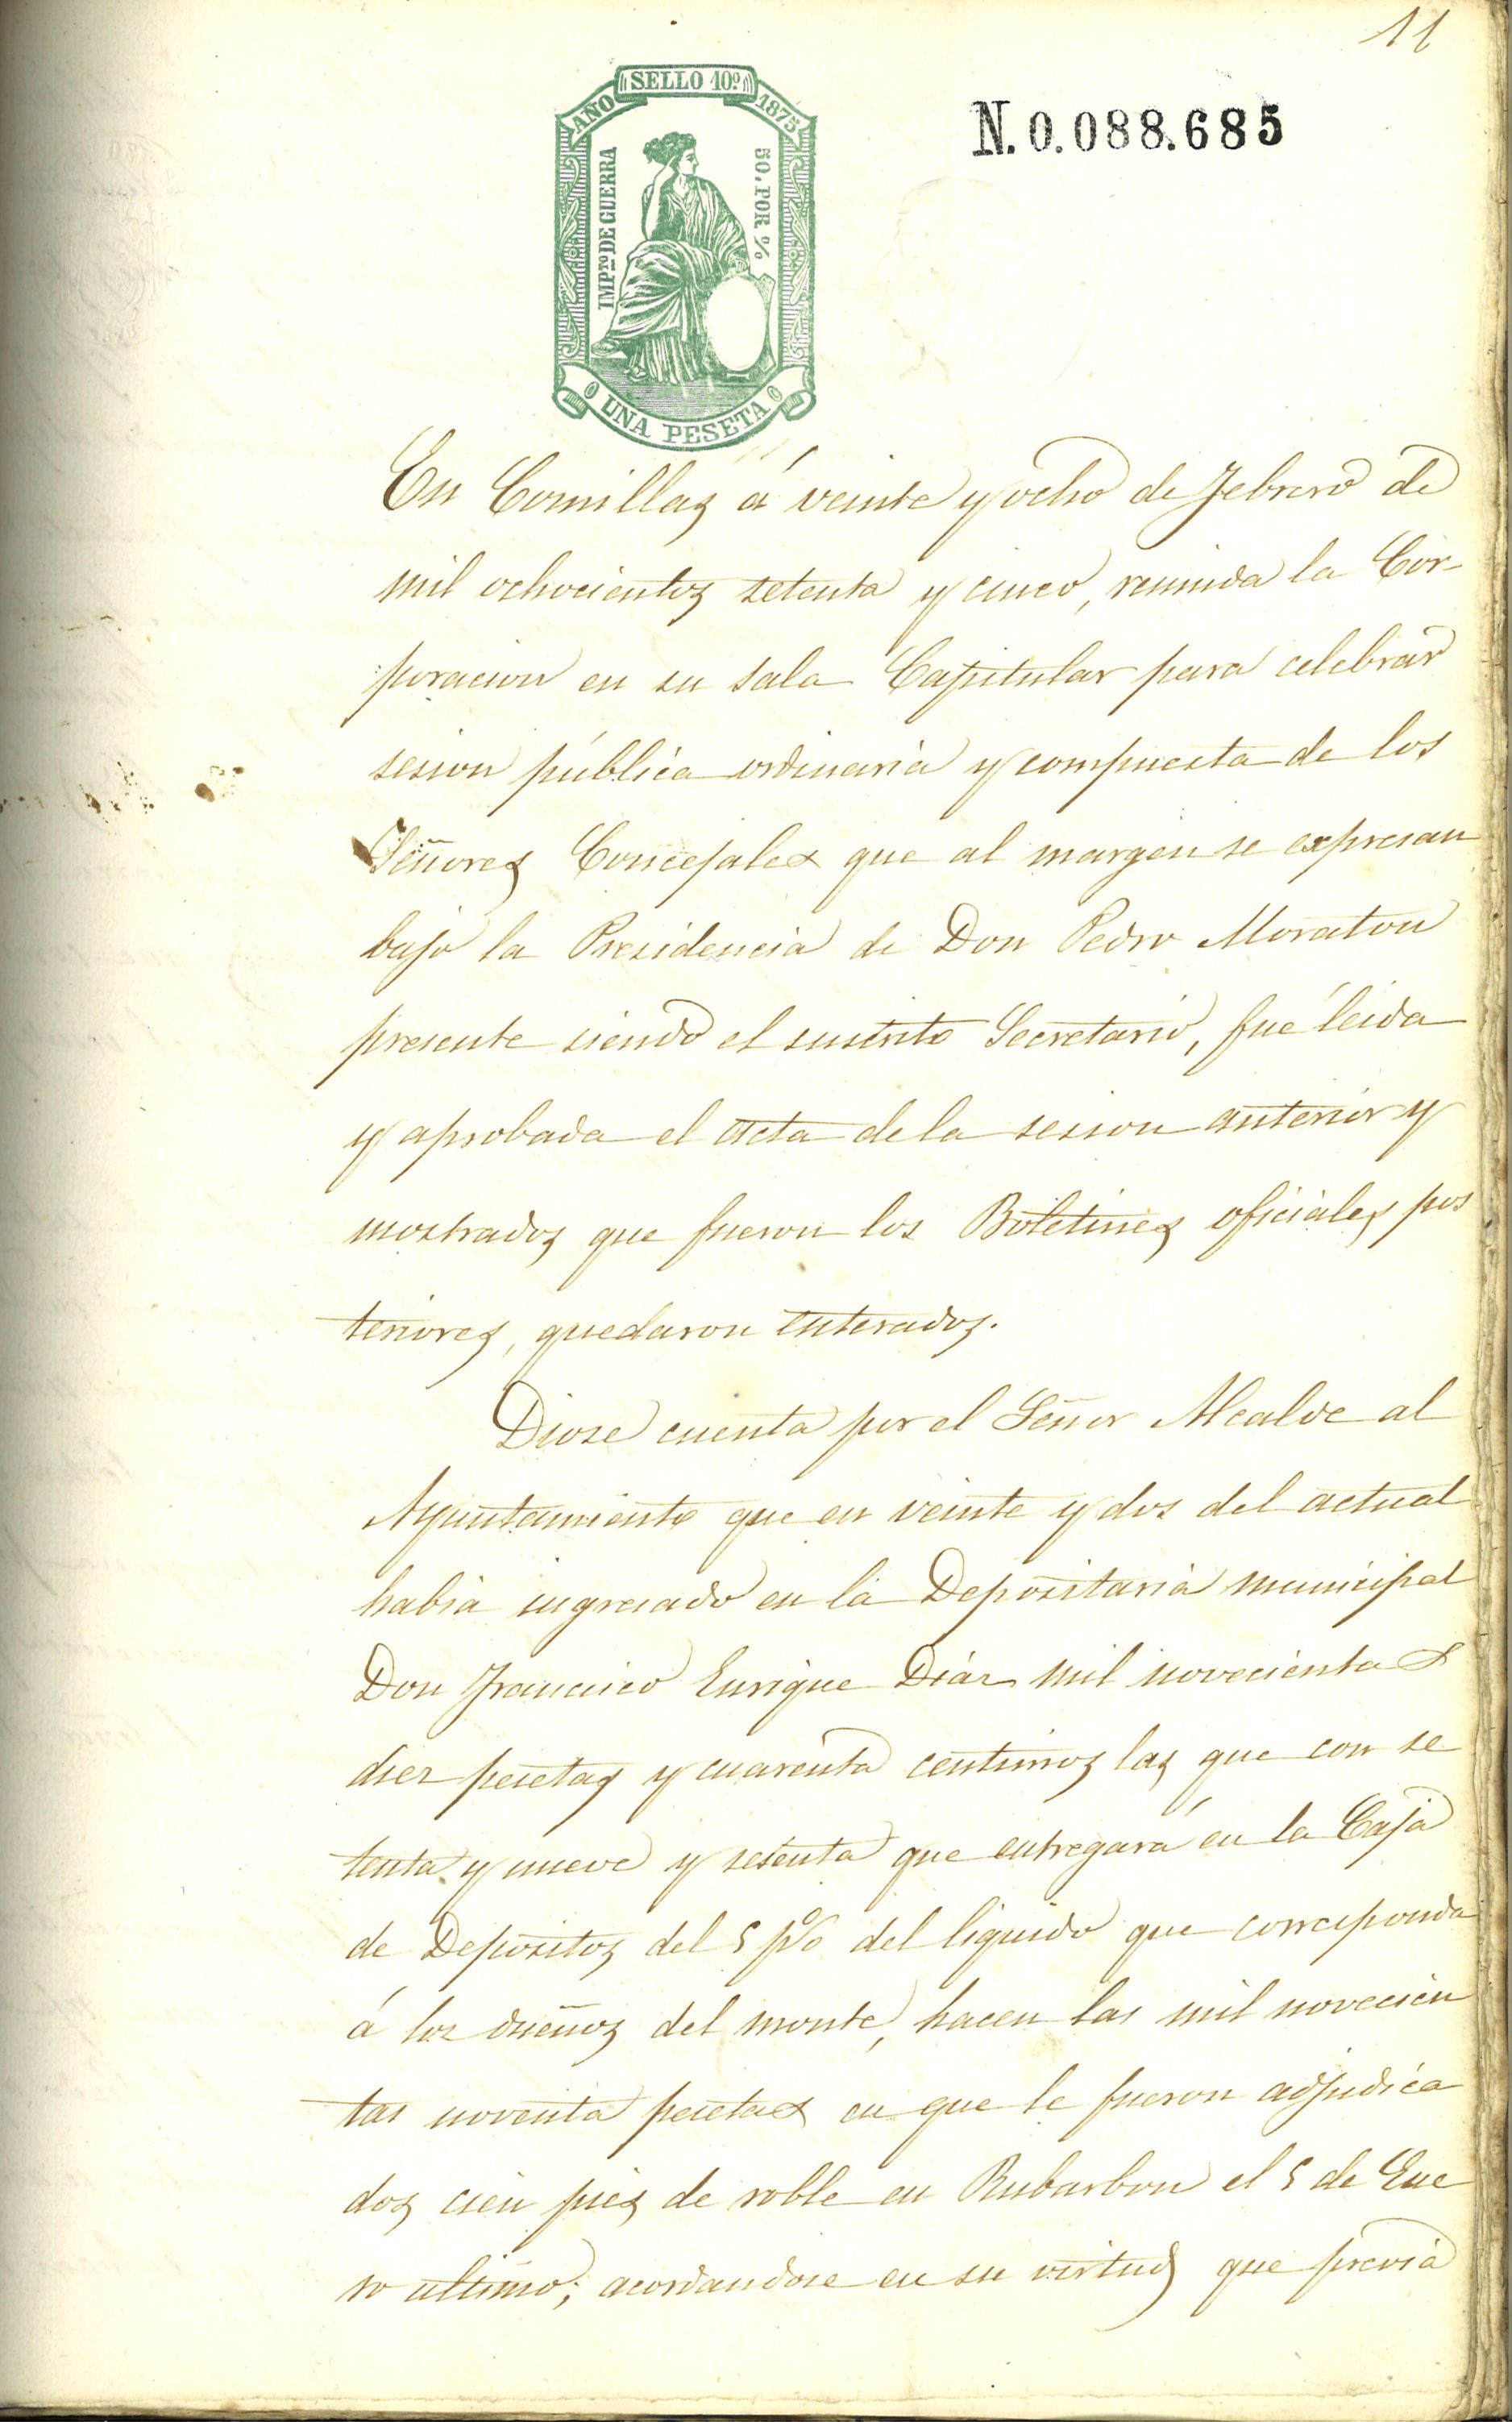 11
SELLO 10º
AÑO 1875
IMPTO DE GUERRA
50. POR %
UNA PESETA
N. 0.088.685
En Comillas á veinte y ocho de Febrero de
mil ochocientos setenta y cinco, reunida la Cor-
poracion en su sala Capitular para celebrar
sesion pública ordinaria y compuesta de los
Señores Concejales que al margen se expresan
bajo la Presidencia de Don Pedro Moraton
presente siendo el suscrito Secretario, fué leida
y aprobada el acta de la sesion anterior y
mostrados que fueron los Boletines oficiales pos
teriores, quedaron enterados.
Diose cuenta por el Señor Alcalde al
Ayuntamiento que en veinte y dos del actual
habia ingresado en la Depositaria municipal
Don Francisco Enrique Diaz mil novecientas
diez pesetas y cuarenta centimos las que con se
tenta y nueve y sesenta que entregará en la Caja
de Depositos del 5 p% del liquido que corresponda
á los dueños del monte, hacen las mil novecien
tas noventa pesetas en que le fueron adjudica
dos cien pies de roble en Rubarbon el 5 de Ene
ro ultimo; acordandose en su virtud que previa